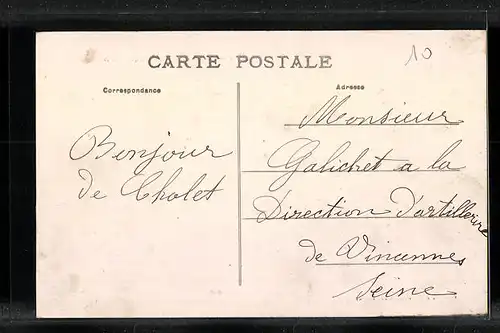 CARTE POSTALE
10
Correspondance
Adresse
Bonjour
de Cholet
Monsieur
Galichet a la
Direction d'artillerie
de Vincennes
Seine